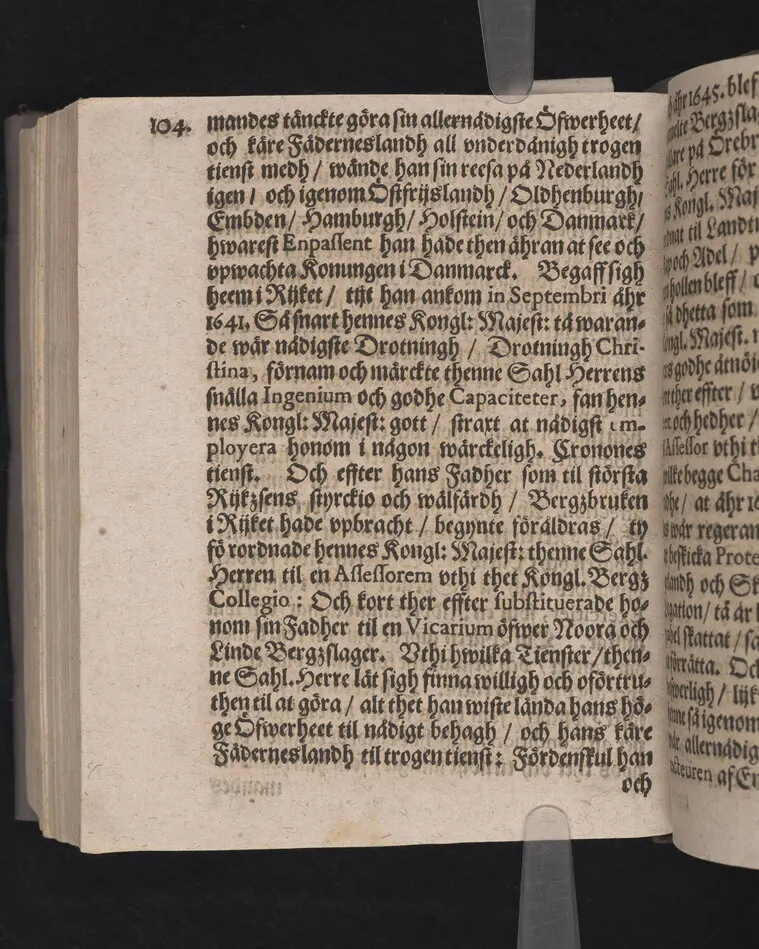 104.
mandes tänckte göra sin allernådigste Öfwerheet/
och käre Fäderneslandh all vnderdånigh trogen
tienst medh / wände han sin reesa på Nederlandh
igen / och igenom Östfrijslandh / Oldhenburgh/
Embden/ Hamburgh/ Holstein/ och Danmark/
hwarest Enpassent han hade then ähran at see och
vpwachta Konungen i Danmarck. Begaff sigh
heem i Rijket / tijt han ankom in Septembri åhr
1641. Så snart hennes Kongl: Majest: tå waran⸗
de wår nådigste Drotningh / Drotningh Chri-
stina, förnam och märckte thenne Sahl Herrens
snälla Ingenium och godhe Capaciteter, fan hen⸗
nes Kongl: Majest: gott / straxt at nådigst em-
ployera honom i någon wärckeligh. Cronones
tienst. Och effter hans Fadher som til största
Rijkzsens styrckio och wälfärdh / Bergzbruken
i Rijket hade vpbracht / begynte föräldras / ty
förordnade hennes Kongl: Majest: thenne Sahl.
Herren til en Assessorem vthi thet Kongl. Bergz
Collegio : Och kort ther effter substituerade ho⸗
nom sin Fadher til en Vicarium öfwer Noora och
Linde Bergzslager. Vthi hwilka Tienster/then⸗
ne Sahl. Herre lät sigh finna willigh och oförtru⸗
then til at göra / alt thet han wiste lända hans hö⸗
ge Öfwerheet til nådigt behagh / och hans käre
Fäderneslandh til trogen tienst: Fördenskul han
och
åhr 1645. blef
Bergzslag
på Örebr
Herre för
Kongl. Maj
til Landt
och Adel / p
hollen bleff /
dhetta som
Majest.
godhe åtnöi
ther effter /
och hedher /
Assessor vthi t
begge Cha
at åhr 16
wår regeran
beskicka Prote
och Sk
tå är
skattat / sa
Oc
lijk
så igenom
allernådig
af En